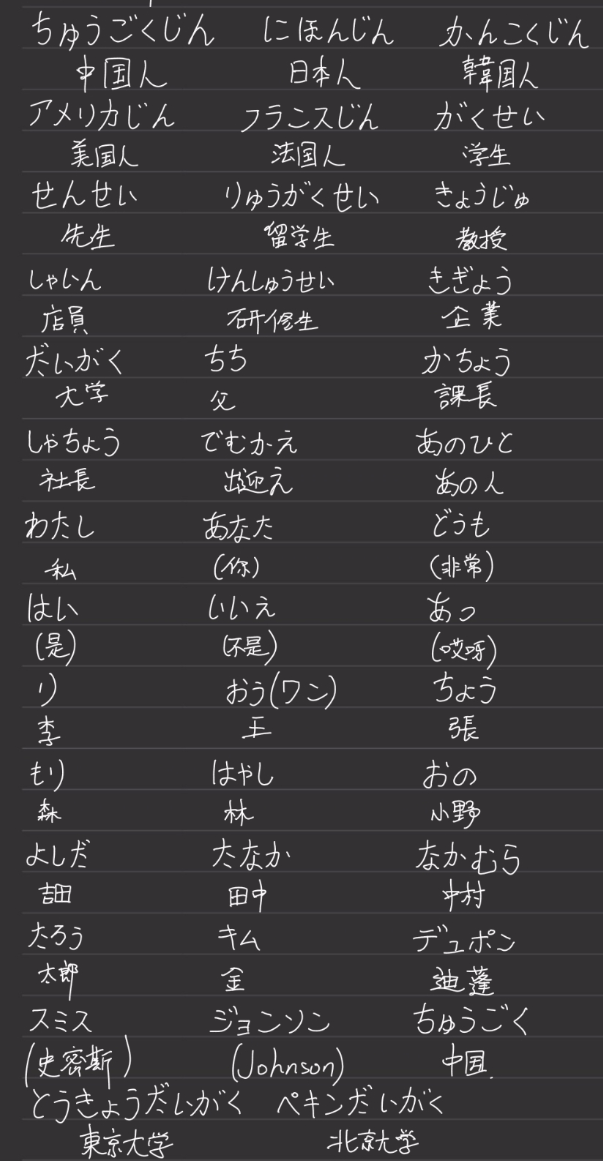 ちゅうごくじん にほんじん かんこくじん
中国人 日本人 韓国人
アメリカじん フランスじん がくせい
美国人 法国人 学生
せんせい りゅうがくせい きょうじゅ
先生 留学生 教授
しゃいん けんしゅうせい きぎょう
店員 研修生 企業
だいがく ちち かちょう
大学 父 課長
しゃちょう でむかえ あのひと
社長 出迎え あの人
わたし あなた どうも
私 (你) (非常)
はい いいえ あっ
(是) (不是) (哎呀)
り おう(ワン) ちょう
李 王 張
もり はやし おの
森 林 小野
よしだ たなか なかむら
吉田 田中 中村
たろう キム デュポン
太郎 金 迪蓬
スミス ジョンソン ちゅうごく
(史密斯) (Johnson) 中国
とうきょうだいがく ペキンだいがく
東京大学 北京大学